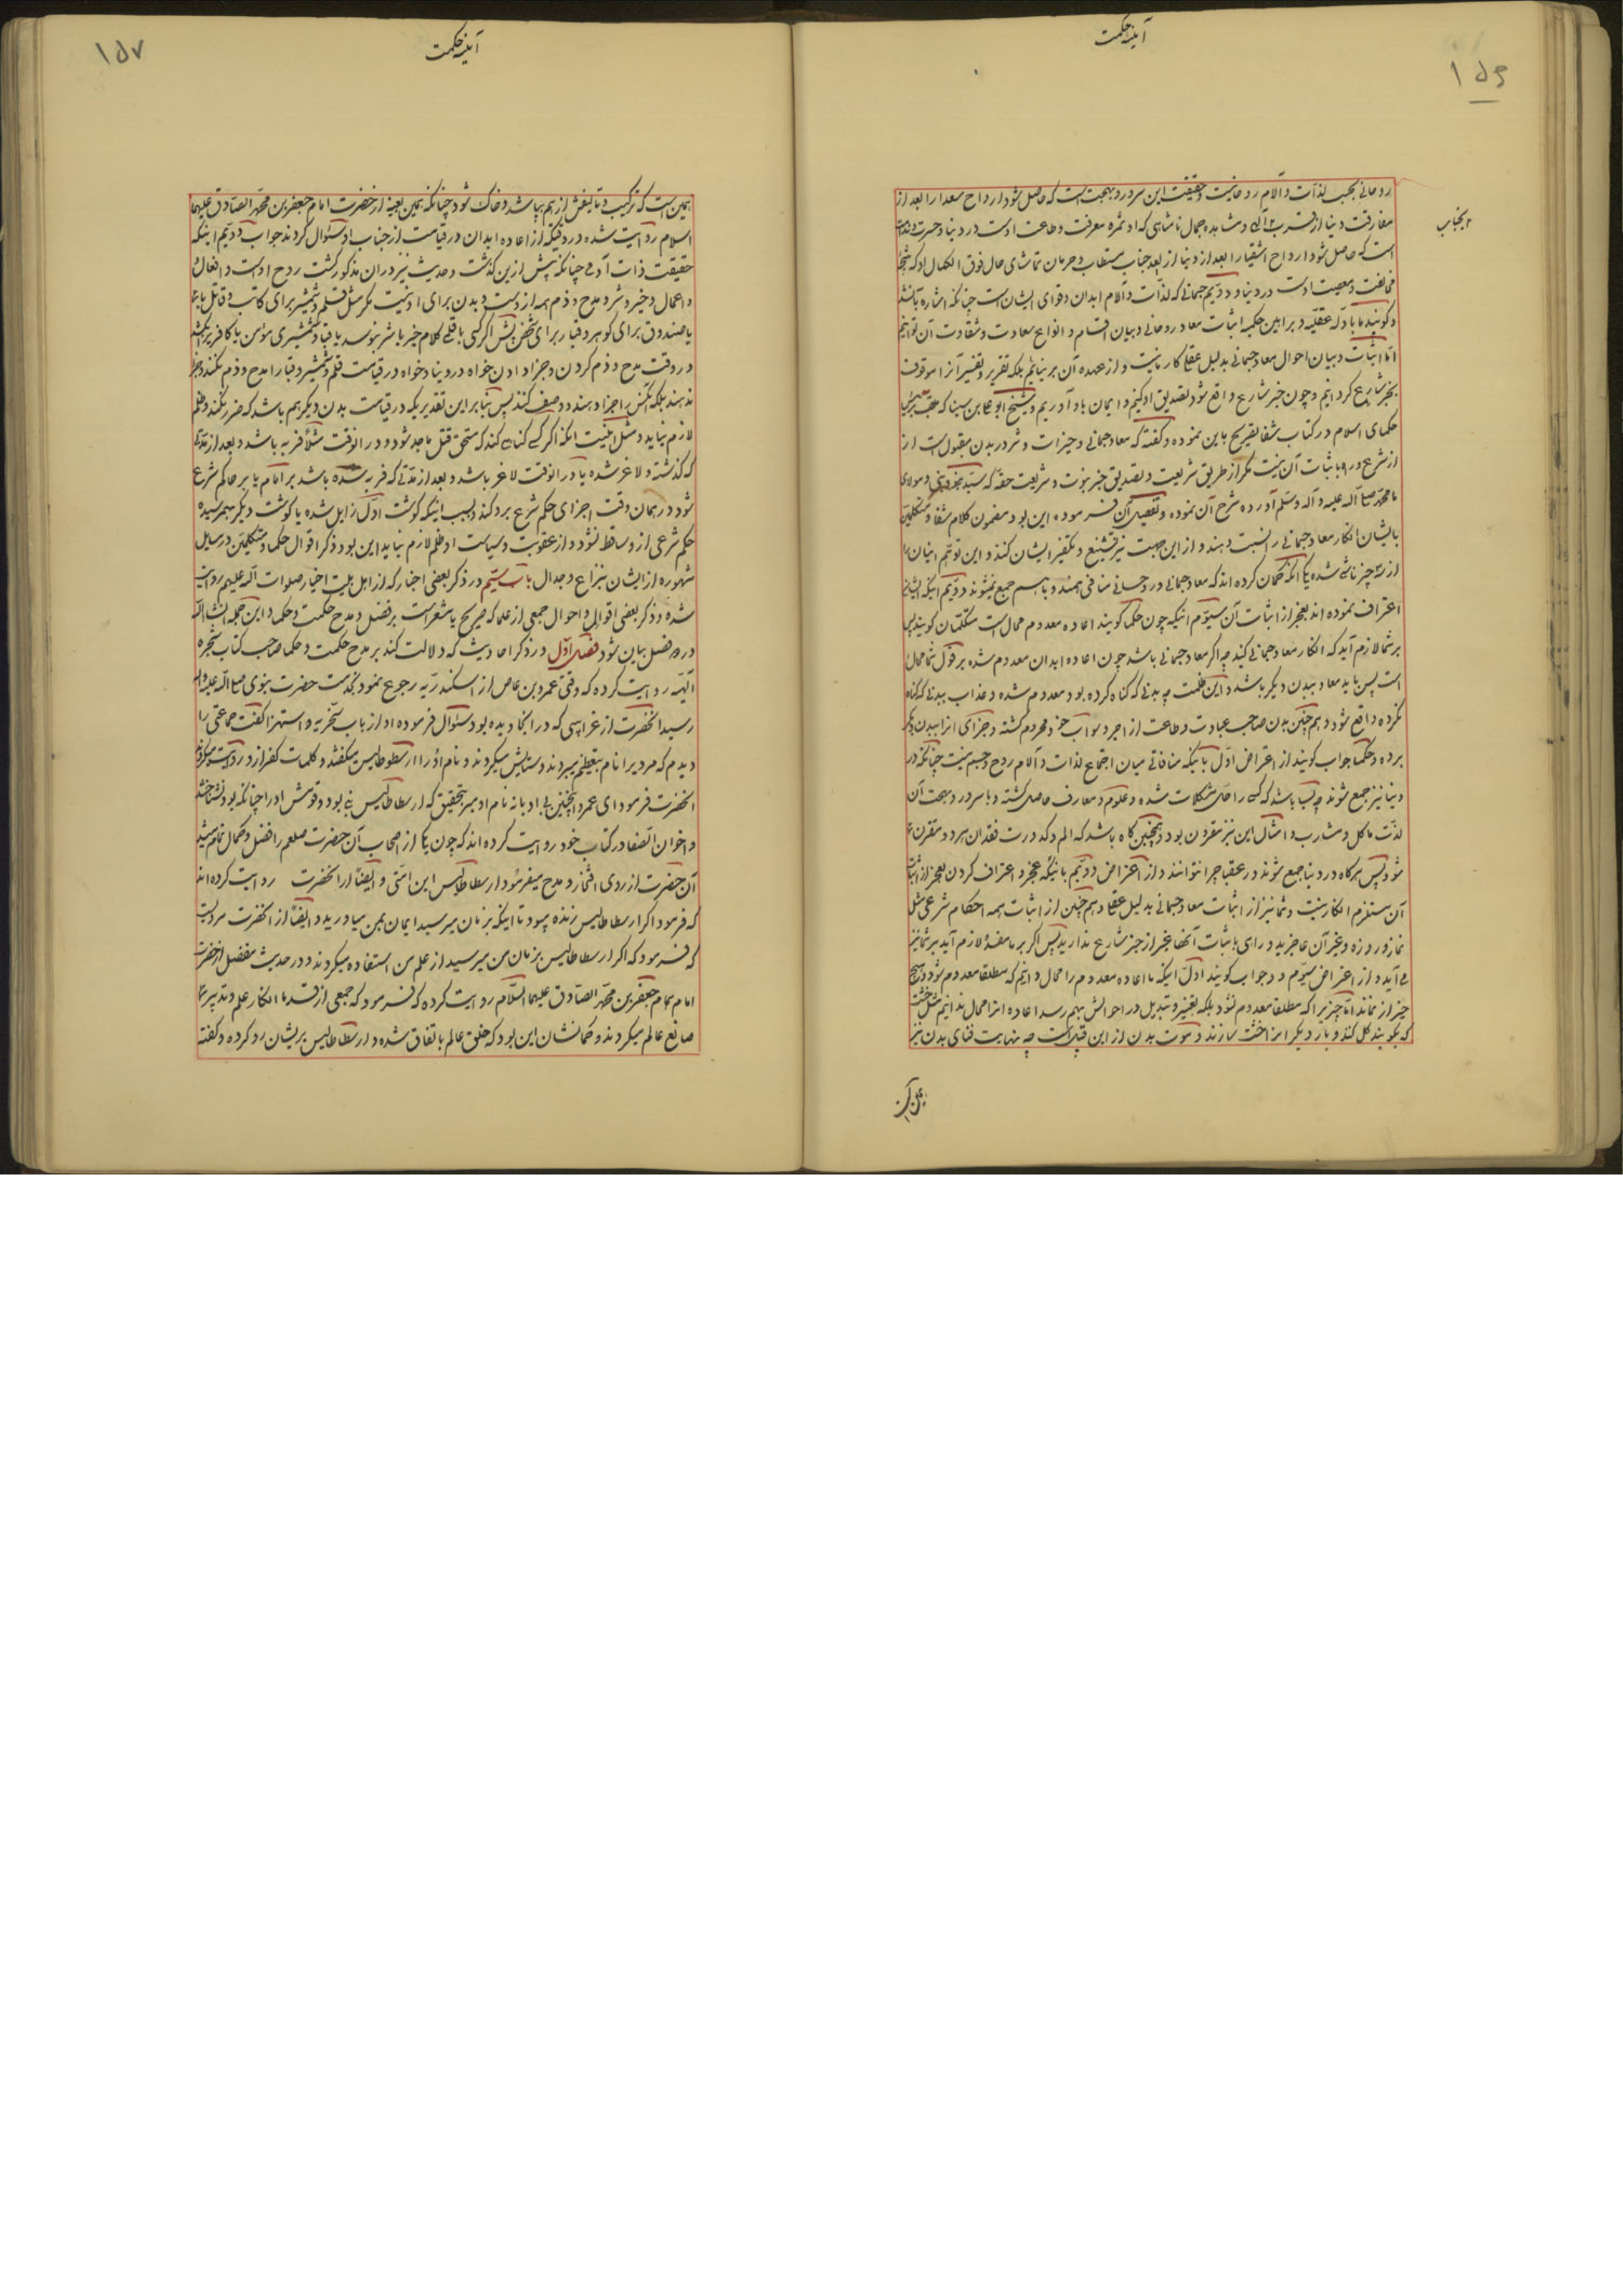 آینه حکمت
۱۵۶
روحانی بحسب لذات و آلام روحانیت و حقیقت این سرور و بهجت است که حاصل شود ارواح سعدا را بعد از
مفارقت دنیا از قرب الهی و مشاهده جمال نامتناهی که او ثمره معرفت و طاعت اوست در دنیا و حسرت و ندامت
است که حاصل شود ارواح اشقیا را بعد از دنیا از بعد جناب مستطاب و حرمان تماشای جمال فوق الکمال او که نتیجه
مخالفت و معصیت اوست در دنیا و دویم جسمانی که لذات و آلام ابدان و قوای ایشان است چنانکه اشاره بآن شد
و گویند ما بادله عقلیه و براهین حکمیه اثبات معاد روحانی و بیان اقسام و انواع سعادت و شقاوت آن توانیم
اما اثبات و بیان احوال معاد جسمانی بدلیل عقلی کار ما نیست و از عهده آن بر نیائیم بلکه تقریر و تفسیر آنرا موقوف
بخبر شارع کردانیم و چون خبر شارع واقع شود تصدیق او کنیم و ایمان باو آوریم و شیخ ابو علی بن سینا که
حکمای اسلام در کتاب شفا تصریح باین نموده و گفته که معاد جسمانی و خیرات و شرور بدن مقبول است از
از شرع و راه باثبات آن نیست مگر از طریق شریعت و تصدیق خبر نبوت و شریعت حقه که سید و مولای
ما محمد صلی الله علیه و آله و سلم آورده شرح آن نموده و تفصیل آن فرموده این بود مضمون کلام شفا و متکلمین
بایشان انکار معاد جسمانی را نسبت دهند و از این جهت نیز تشنیع و تکفیر ایشان کنند و این توهم ایشان را
از سه چیز ناشی شده یکی آنکه گمان کرده اند که معاد جسمانی و روحانی منافی همند و باهم جمع نمیشوند دویم اینکه ایشان
اعتراف نموده اند بعجز از اثبات آن سیوم اینکه چون حکما گویند اعاده معدوم محال است متکلمان گویند پس
بر شما لازم آید که انکار معاد جسمانی کنید چه اگر معاد جسمانی باشد چون اعاده ابدان معدوم شده بر قول شما محال
است پس باید معاد ببدن دیگر باشد و این ظلمست چه بدنی که گناه کرده بود معدوم شده و عذاب ببدنی که گناه
نکرده واقع شود و همچنین بدن صاحب عبادت و طاعت از اجر و ثواب خود محروم گشته و جزای انرا ببدن دیگر
برده و حکما جواب گویند از اعتراض اول باینکه منافاتی میان اجتماع لذات و آلام روح و جسم نیست چنانکه در
دنیا نیز جمع شوند چه بسا باشد که کسی را حل مشکلات شده و علوم و معارف حاصل گشته و با سرور و بهجت آن
لذت ماکل و مشارب و امثال این نیز مقرون بود و همچنین گاه باشد که الم و کدورت فقدان هر دو مقرون
شود پس هرگاه در دنیا جمع شوند در عقبا چرا نتوانند و از اعتراض دویم باینکه عجز و اعتراف کردن بعجز از اثبات
آن مستلزم انکار نیست و شما نیز از اثبات معاد جسمانی بدلیل عقلی و همچنین از اثبات همه احکام شرعی مثل
نماز و روزه و غیر آن عاجزید و راهی باثبات آنها غیر از خبر شارع ندارید پس اگر بر ما مفسده لازم آید بر شما نیز
می آید و از اعتراض سیوم دو جواب گویند اول اینکه ما اعاده معدوم را محال دانیم که مطلقا معدوم شود و هیچ
چیز از نماند اما چیزیرا که مطلقا معدوم نشود بلکه تغییر و تبدیل در احوالش بهم رسد اعاده انرا محال ندانیم مثل خشت
که بکوبند گل کنند و بار دیگر انرا خشت سازند و موت بدن از این قبیل است چه نهایت فنای بدن نیز
آینه حکمت
۱۵۷
همین است که ترکیب و تالیفش از هم بپاشد و خاک شود چنانکه همین بعینه از حضرت امام جعفر بن محمد الصادق علیهما
السلام روایت شده در وقتیکه از اعاده ابدان در قیامت از جناب او سئوال کردند جواب دویم اینکه
حقیقت ذات آدمی چنانکه پیش ازین گذشت و حدیث نیز در ان مذکور گشت روح اوست و افعال
و اعمال و خیر و شر و مدح و ذم همه از اوست و بدن برای او نیست مگر مثل قلم و شمشیر برای کاتب و قاتل یا
یا صندوق برای گوهر و قبا برای شخص پس اگر کسی باقلمی کلام خیر یا شر بنویسد یا قبا و شمشیری مؤمن یا کافر بکشد
در وقت مدح و ذم کردن و جزا دادن خواه در دنیا و خواه در قیامت قلم و شمشیر و قبا را مدح و ذم نکنند و جزا
ندهند بلکه نفس را جزا دهند و وصف کنند پس بنابر این تقدیر یکه در قیامت بدن دیگر هم باشد که ضرر نکند و ظلم
لازم نیاید و مثل اینست انکه اگر کسی گناهی کند که مستحق قتل یا حد شود و در انوقت مثلا فربه باشد و بعد از مدتی
که گذشته و لاغر شده یا در انوقت لاغر باشد و بعد از مدتی که فربه شده باشد بر امام یا بر حاکم شرع
شود در همان وقت اجزای حکم شرع برد کند و بسبب اینکه گوشت اول زایل شده یا گوشت دیگر بهم رسیده
حکم شرعی از و ساقط نشود و از عقوبت و سیاست او ظلم لازم نیاید این بود ذکر اقوال حکما و متکلمین در مسایل
مشهوره از ایشان بنزاع و جدال باب سیّم در ذکر بعضی اخبار که از اهل بیت اخیار صلوات الله علیهم روایت
شده و ذکر بعضی اقوال و احوال جمعی از علما که صریح یا مشعر است بر فضل و مدح حکمت و حکما و این جمله انشاء الله
در دو فصل بیان شود فصل اول در ذکر احادیث که دلالت کند بر مدح حکمت و حکما صاحب کتاب شجره
الهیّه روایت کرده که وقتی عمرو بن عاص از اسکندریه رجوع نموده بخدمت حضرت نبوی صلی الله علیه و اله
رسید انحضرت از غرایبی که در انجا دیده بود سئوال فرموده او از باب سخریه و استهزا گفت جماعتی را
دیدم که مردیرا نام بتعظیم میبردند و ستایش میکردند و نام او را ارسطوطالیس میگفتند و کلمات کفر از او روایت میکردند
انحضرت فرمود ای عمرو اینچنین بی ادبانه نام او مبر بتحقیق که ارسطاطالیس نبی بود و قومش او را چنانکه بود نشناختند
و اخوان الصفا در کتاب خود روایت کرده اند که چون یکی از اصحاب آن حضرت صلعم را فضل و کمال تمام میشد
آن حضرت از روی افتخار و مدح میفرمود ارسطاطالیس این امتی و ایضا از انحضرت روایت کرده اند
که فرمود اگر ارسطاطالیس زنده میبود تا اینکه بزمان میرسید ایمان بمن میاورید و ایضا از انحضرت مرویست
که فرمود که اگر ارسطاطالیس بزمان من میرسید از علم من استفاده میکردند و در حدیث مفضل از حضرت
امام همام جعفر بن محمد الصادق علیهما السلام روایت کرده که فرمود که جمعی از قدما انکار علم و تدبیر
صانع عالم میکردند و گمانشان این بود که خلق عالم باتفاق شده و ارسطاطالیس بریشان رد کرده و گفته